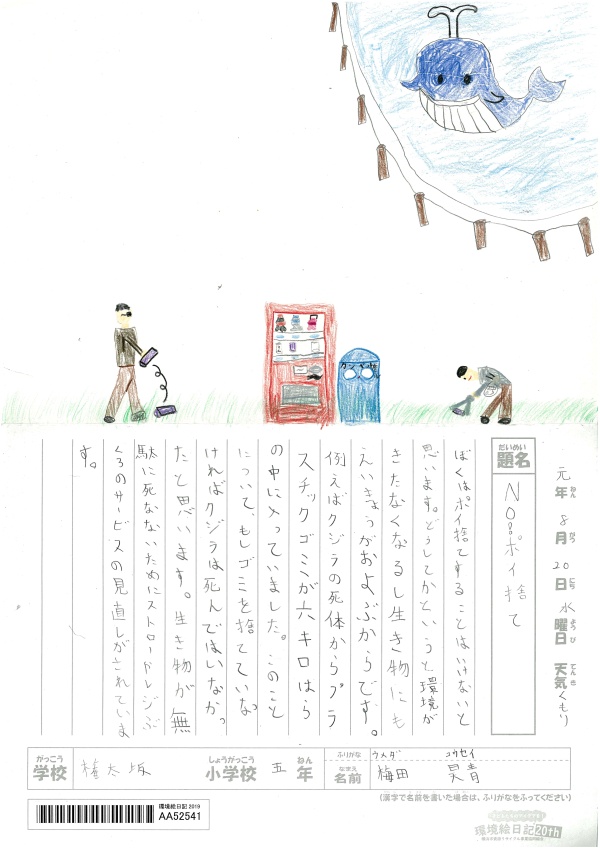 カン ペット
元年 8月 20日 水曜日 天気 くもり
ねん がつ にち ようび てんき
だいめい
題名
NO!! ポイ捨て
ぼくはポイ捨てすることはいけないと
思います。どうしてかというと環境が
きたなくなるし生き物にも
えいきょうがおよぶからです。
例えばクジラの死体からプラ
スチックゴミが六キロはら
の中に入っていました。このこと
について、もしゴミを捨てていな
ければクジラは死んではいなかっ
たと思います。生き物が無
駄に死なないためにストローやレジぶ
くろのサービスの見直しがされていま
す。
がっこう
学校
権太坂
しょうがっこう
小学校
五
ねん
年
ふりがな
ウメダ コウセイ
なまえ
名前
梅田 昊青
(漢字で名前を書いた場合は、ふりがなをふってください)
環境絵日記 2019
AA52541
環境絵日記 20th